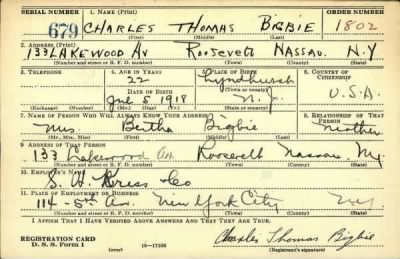 SERIAL NUMBER 1. NAME (Print) ORDER NUMBER
679 CHARLES THOMAS BIGBIE 1802
(First) (Middle) (Last)
2. ADDRESS (Print)
133 LAKEWOOD AV ROOSEVELT NASSAU. N.Y
(Number and street or R. F. D. number) (Town) (County) (State)
3. TELEPHONE 4. AGE IN YEARS 5. PLACE OF BIRTH 6. COUNTRY OF CITIZENSHIP
22 Lyndhurst
DATE OF BIRTH (Town or county)
July 5 1918 N.J. U.S.A.
(Exchange) (Number) (Mo.) (Day) (Yr.) (State or country)
7. NAME OF PERSON WHO WILL ALWAYS KNOW YOUR ADDRESS 8. RELATIONSHIP OF THAT PERSON
Mrs Bertha Bigbie mother
(Mr., Mrs., Miss) (First) (Middle) (Last)
9. ADDRESS OF THAT PERSON
133 Lakewood Av. Roosevelt Nassau NY
(Number and street or R. F. D. number) (Town) (County) (State)
10. EMPLOYER'S NAME
S. H. Kress Co
11. PLACE OF EMPLOYMENT OR BUSINESS
114 - 5th Av. New York City NY
(Number and street or R. F. D. number) (Town) (County) (State)
I AFFIRM THAT I HAVE VERIFIED ABOVE ANSWERS AND THAT THEY ARE TRUE.
REGISTRATION CARD Charles Thomas Bigbie
D. S. S. Form 1 (over) 16-17105 (Registrant's signature)